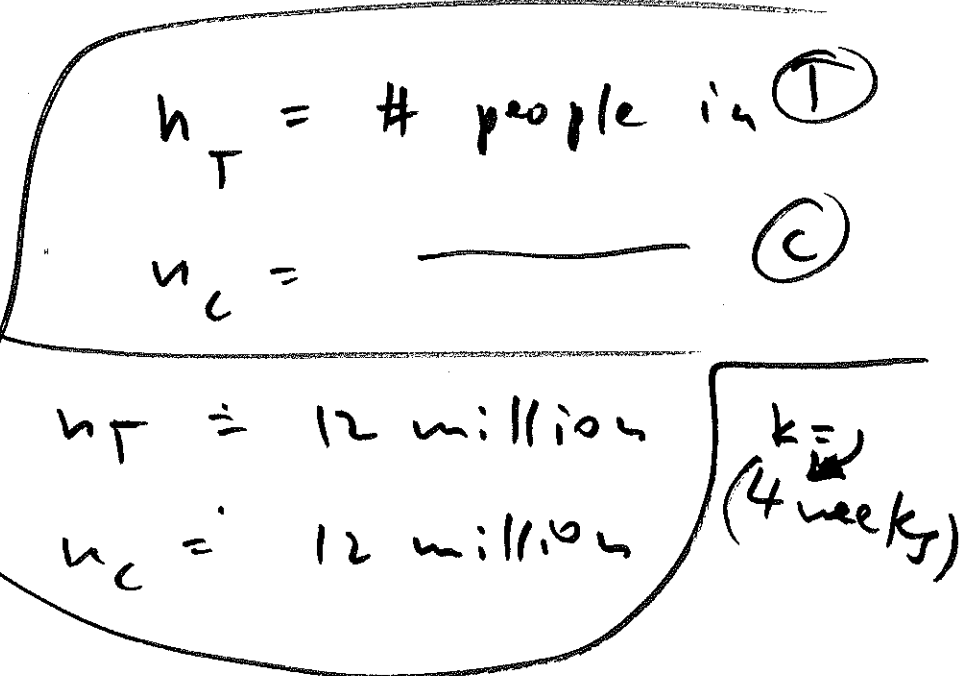 n_T = # people in Ⓣ
n_C = ——— Ⓒ
n_T ≐ 12 million
n_C ≐ 12 million
k =
(4 weeks)